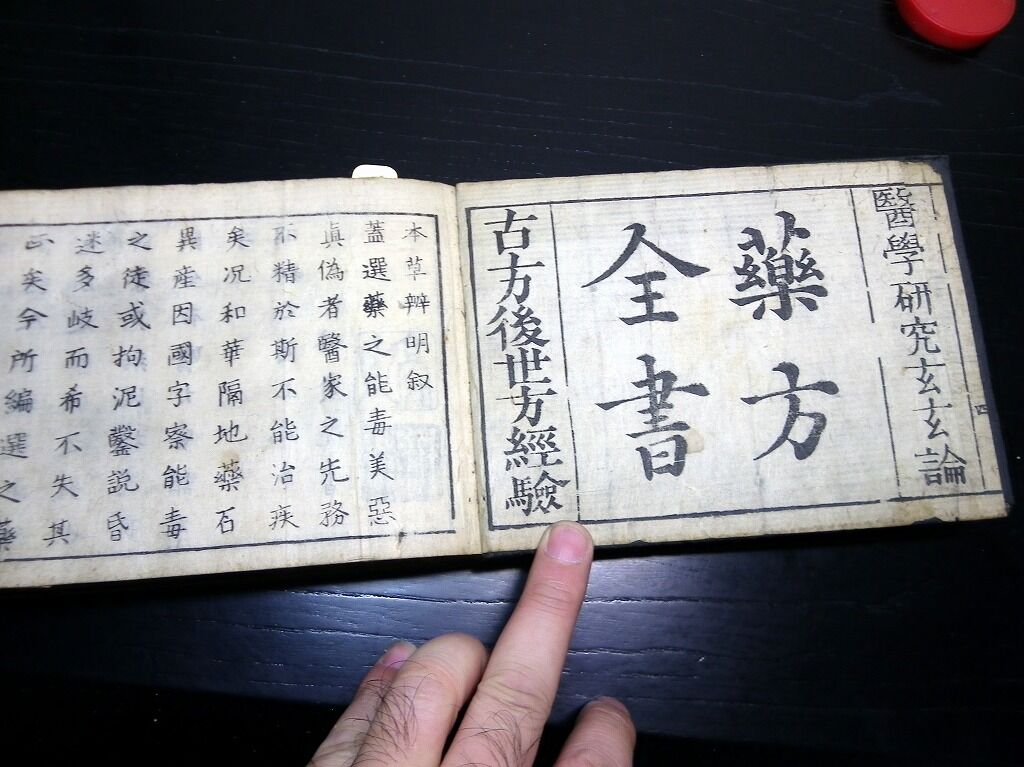 醫學研究玄玄論
藥方
全書
古方後世方經驗
本草辨明叙
蓋選藥之能毒美惡
眞偽者醫家之先務
不精於斯不能治疾
矣况和華隔地藥石
異産因國字察能毒
之徒或拘泥鑿説昏
迷多岐而希不失其
矣今所編選之藥